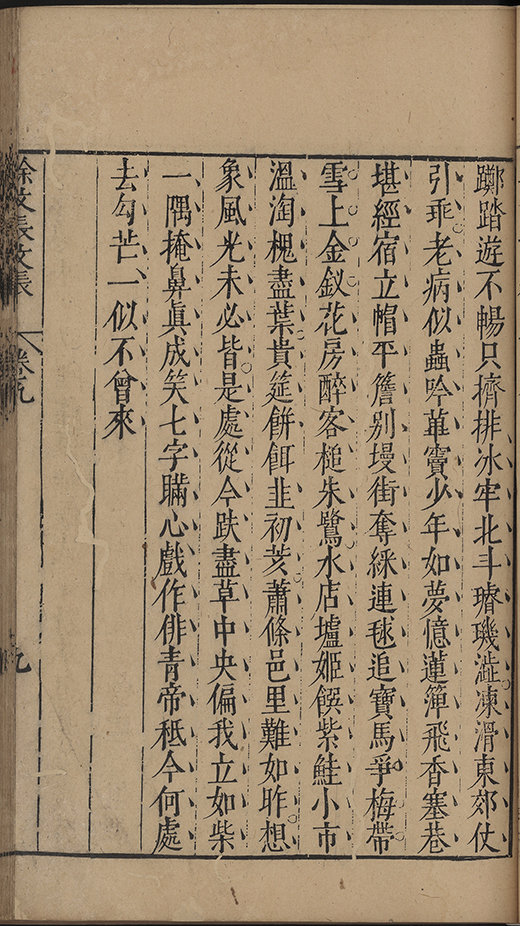 躑踏遊不暢只擠排冰牢北斗璿璣澁凍滑東郊仗
引乖老病似蟲吟蓽竇少年如夢憶蓮簞飛香塞巷
堪經宿立帽平簷别墁街奪綵連毬追寶馬爭梅帶
雪上金釵花房醉客槌朱鷺水店壚姬饌紫鮭小市
溫淘槐盡葉貴筵餅餌韭初芟蕭條邑里難如昨想
象風光未必皆是處從今趺盡草中央偏我立如柴
一隅掩鼻眞成笑七字瞞心戲作俳青帝秪今何處
去勾芒一似不曾來
徐文長文長 卷九
九